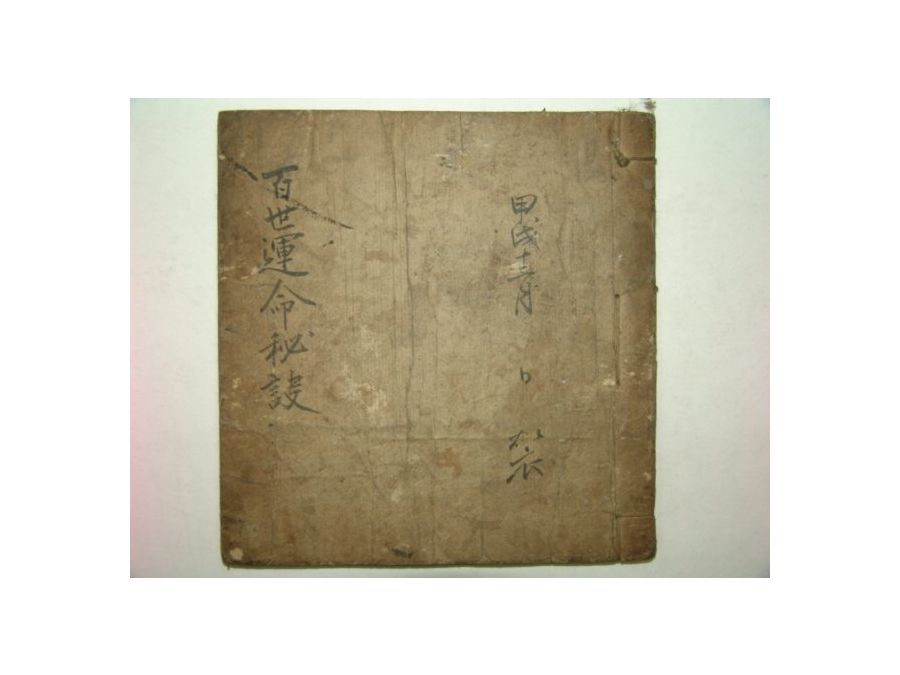 甲戌十二月 日 裝
百世運命秘訣